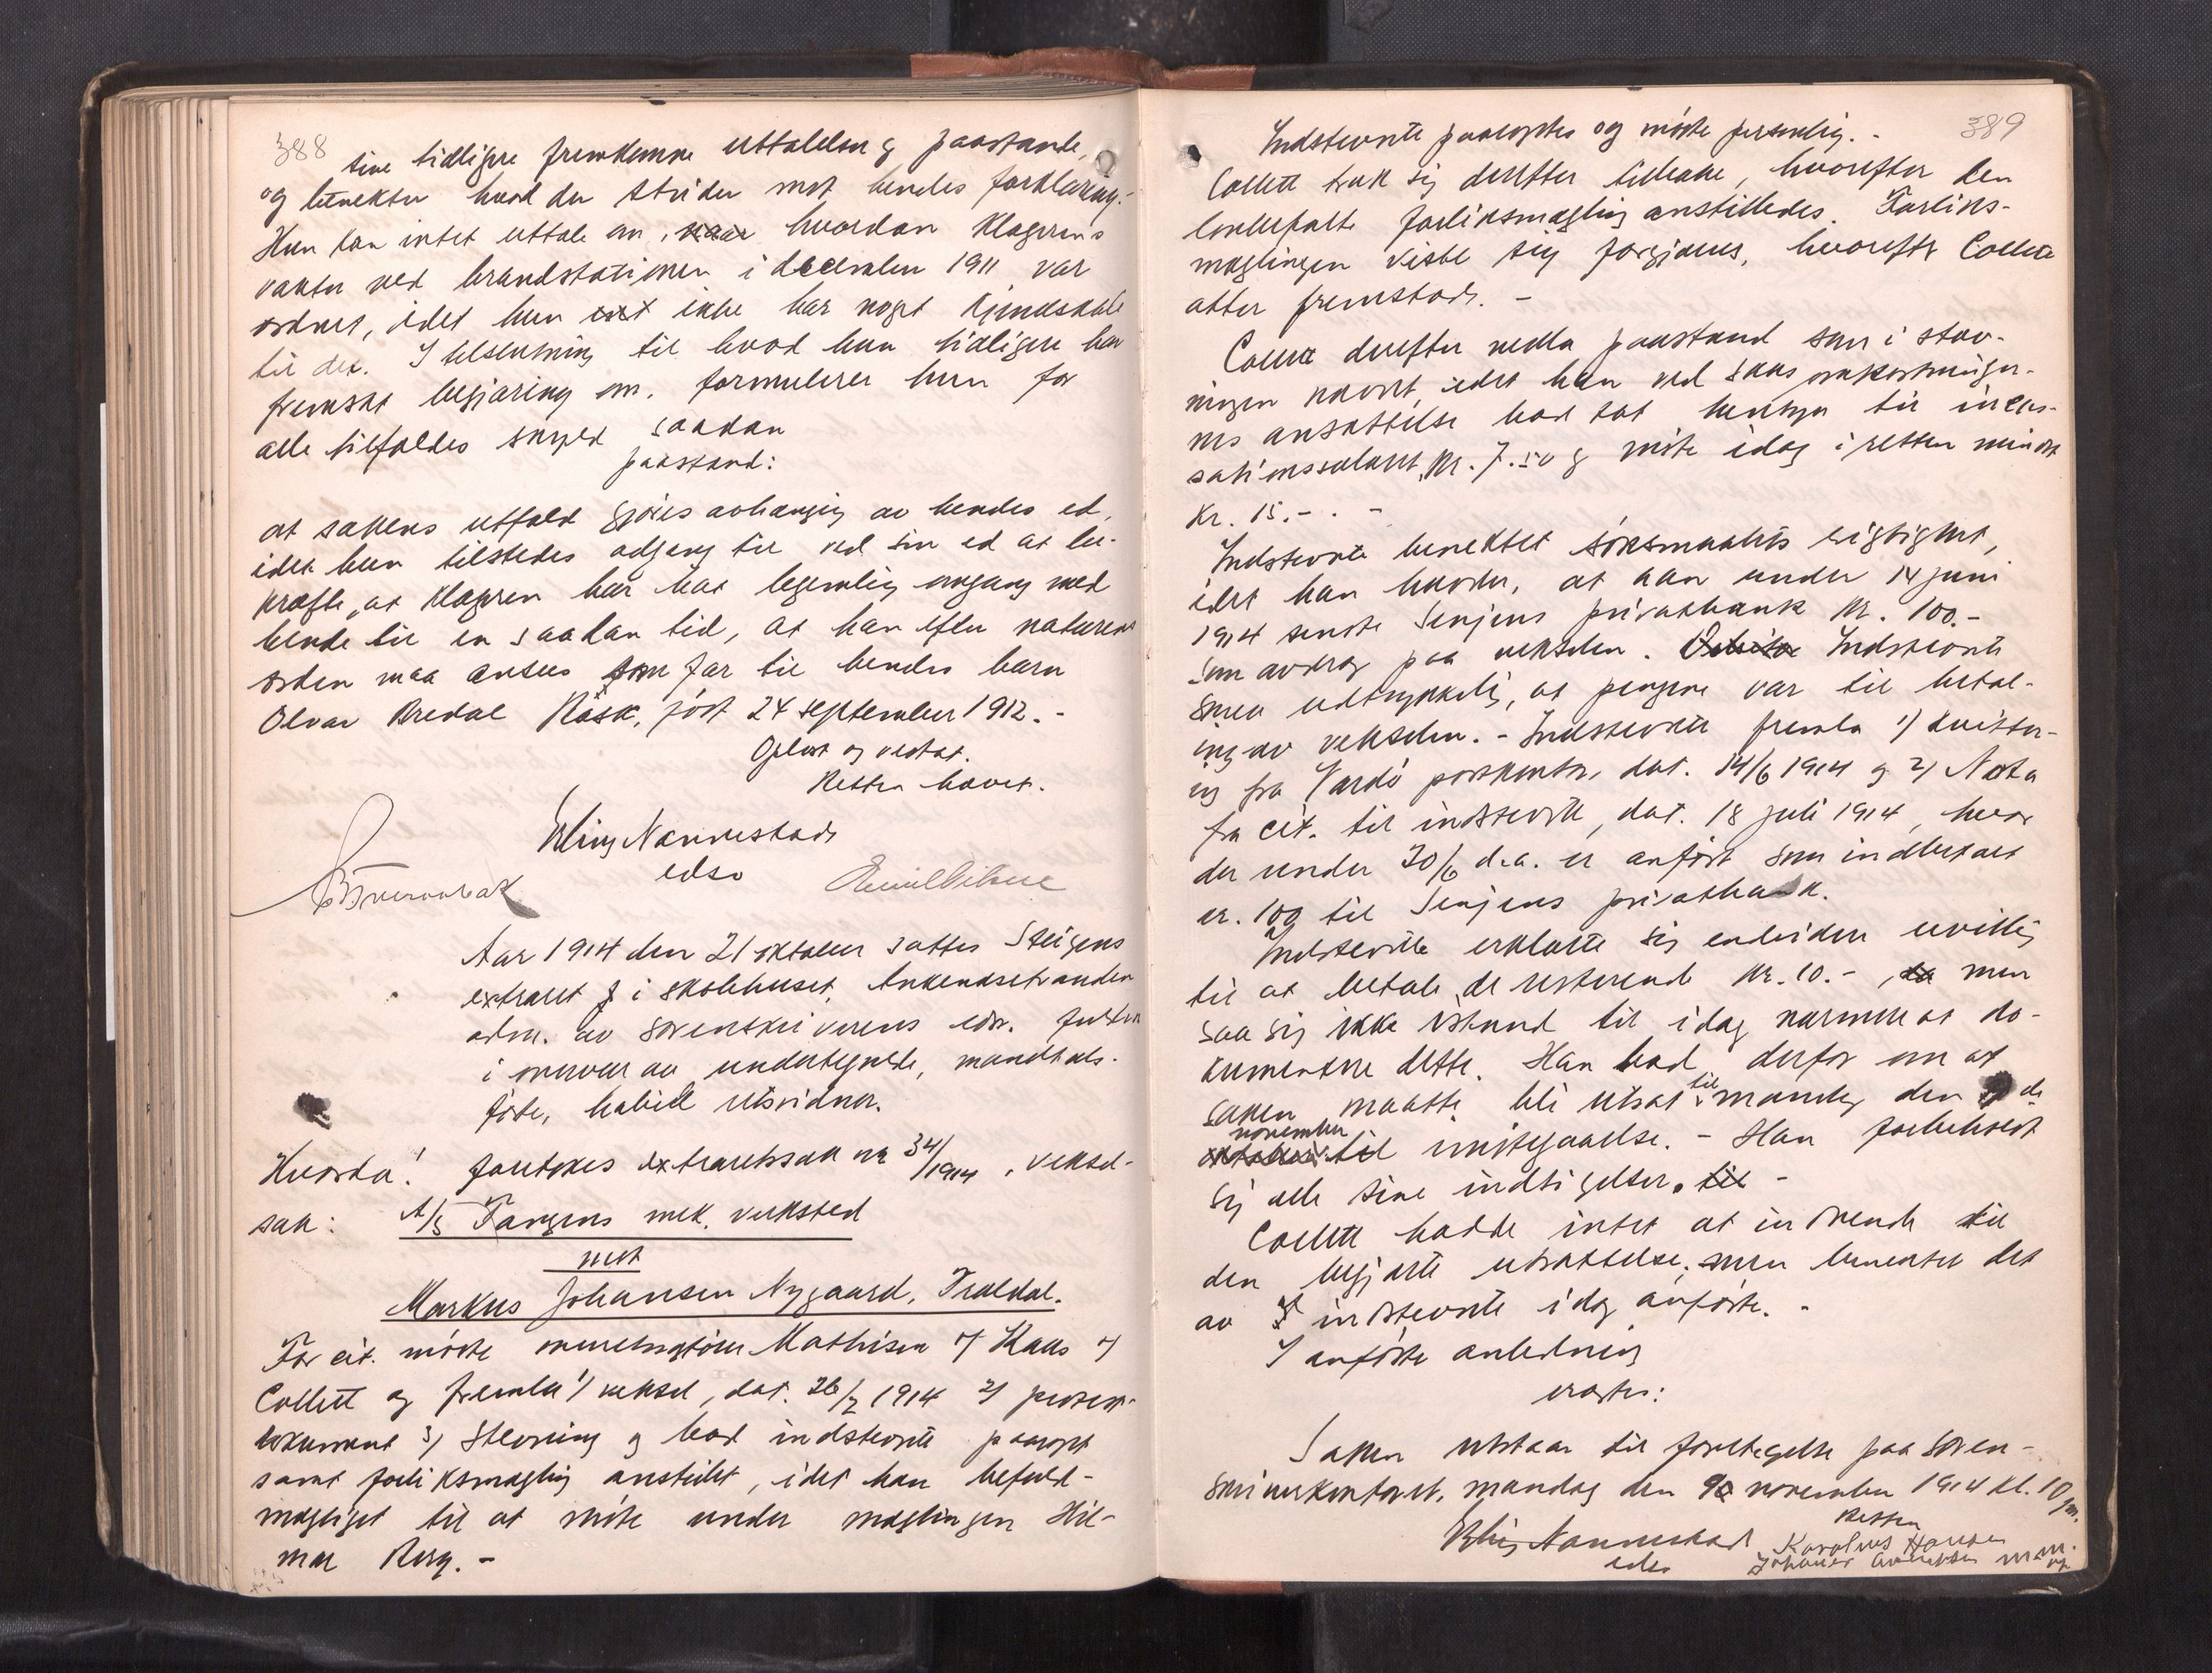 388
sine tidligere fremkomne uttalelser og paastande,
og benekter hvad der strider mot hendes forklaring.
Hun kan intet uttale om, naar hvordan klagerens
vakter ved brandstationen i december 1911 var
ordnet, idet hun int ikke har noget kjendskab
til det. I tilslutning til hvad hun tidligere har
fremsat begjæring om, formulerer hun for
alle tilfældes skyld saadan
paastand:
at sakens utfald gjøres avhængig av hendes ed,
idet hun tilstedes adgang til ved sin ed at be-
kræfte, at klageren har hat legemlig omgang med
hende til en saadan tid, at han efter naturens
orden maa ansees som far til hendes barn
Olvar Bredal Rask, født 24 september 1912. -
Oplæst og vedtat.
Retten hævet.
Erling Nannestad
edsv
Aar 1914 den 21 oktober sattes Steigens
extraret i skolehuset,
adm. av sorenskriverens edsv. fuldm
i overvær av undertegnede, mandtals-
førte, habile retsvidner.
Hvorda! foretokes extraretssak nr 34/1914, veksel-
sak: A/S Tangens mek. verksted
mot
Markus Johansen Nygaard,
For cit. møtte overretssakfører Mathisen v/ Kaas v/
Collett og fremla 1) veksel, dat. 26/2 1914 2) protest-
dokument 3) Stevning og bad indstevnte paaropt
samt forliksmægling anstillet, idet han befuld-
mægtiget til at møte under mæglingen Hil-
mar Berg. -
389
Indstevnte paaroptes og møtte personlig. -
Collett trak sig derefter tilbake, hvorefter den
lovbefalte forliksmægling anstilledes. Forliks-
mæglingen viste sig forgjæves, hvorefter Collett
atter fremstod. -
Collett derefter nedla paastand som i stev-
ningen nævnt, idet han ved saksomkostninger-
nes ansættelse bad tat hensyn til inkas-
sationssalæret, kr. 7.50 og møte idag i retten mindst
kr. 15.- . -
Indstevnte benektet søksmaalets rigtighet,
idet han hævder, at han under 14 juni
1914 sendte Senjens privatbank kr. 100.-
som avdrag paa vekselen. Indstevnte
skrev udtrykkelig, at pengene var til betal-
ing av vekselen. - Indstevnte fremla 1) kvitter-
ing fra Vardø postkontor, dat. 14/6 1914 og 2) Nota
fra cit. til indstevnte, dat. 18 juli 1914, hvor
der under 30/6 d.a. er anført som indbetalt
kr. 100 til Senjens privatbank.
Indstevnte erklærte sig endvidere uvillig
til at betale de resterende kr. 10.-, da men
saa sig ikke istand til idag nærmere at do-
kumentere dette. Han bad derfor om at
saken maatte bli utsat til mandag den 9 de
november
oktober til imøtegaaelse. - Han forbeholdt
sig alle sine indsigelser. til -
Collett hadde intet at indvende til
den begjærte utsættelse, men benektet det
av indstevnte idag anførte. -
I anførte anledning
eragtes:
Saken utstaar til foretagelse paa soren-
skriverkontoret, mandag den 9 november 1914 kl. 10 fm.
Retten
Erling Nannestad
edsv
Karolius Hansen